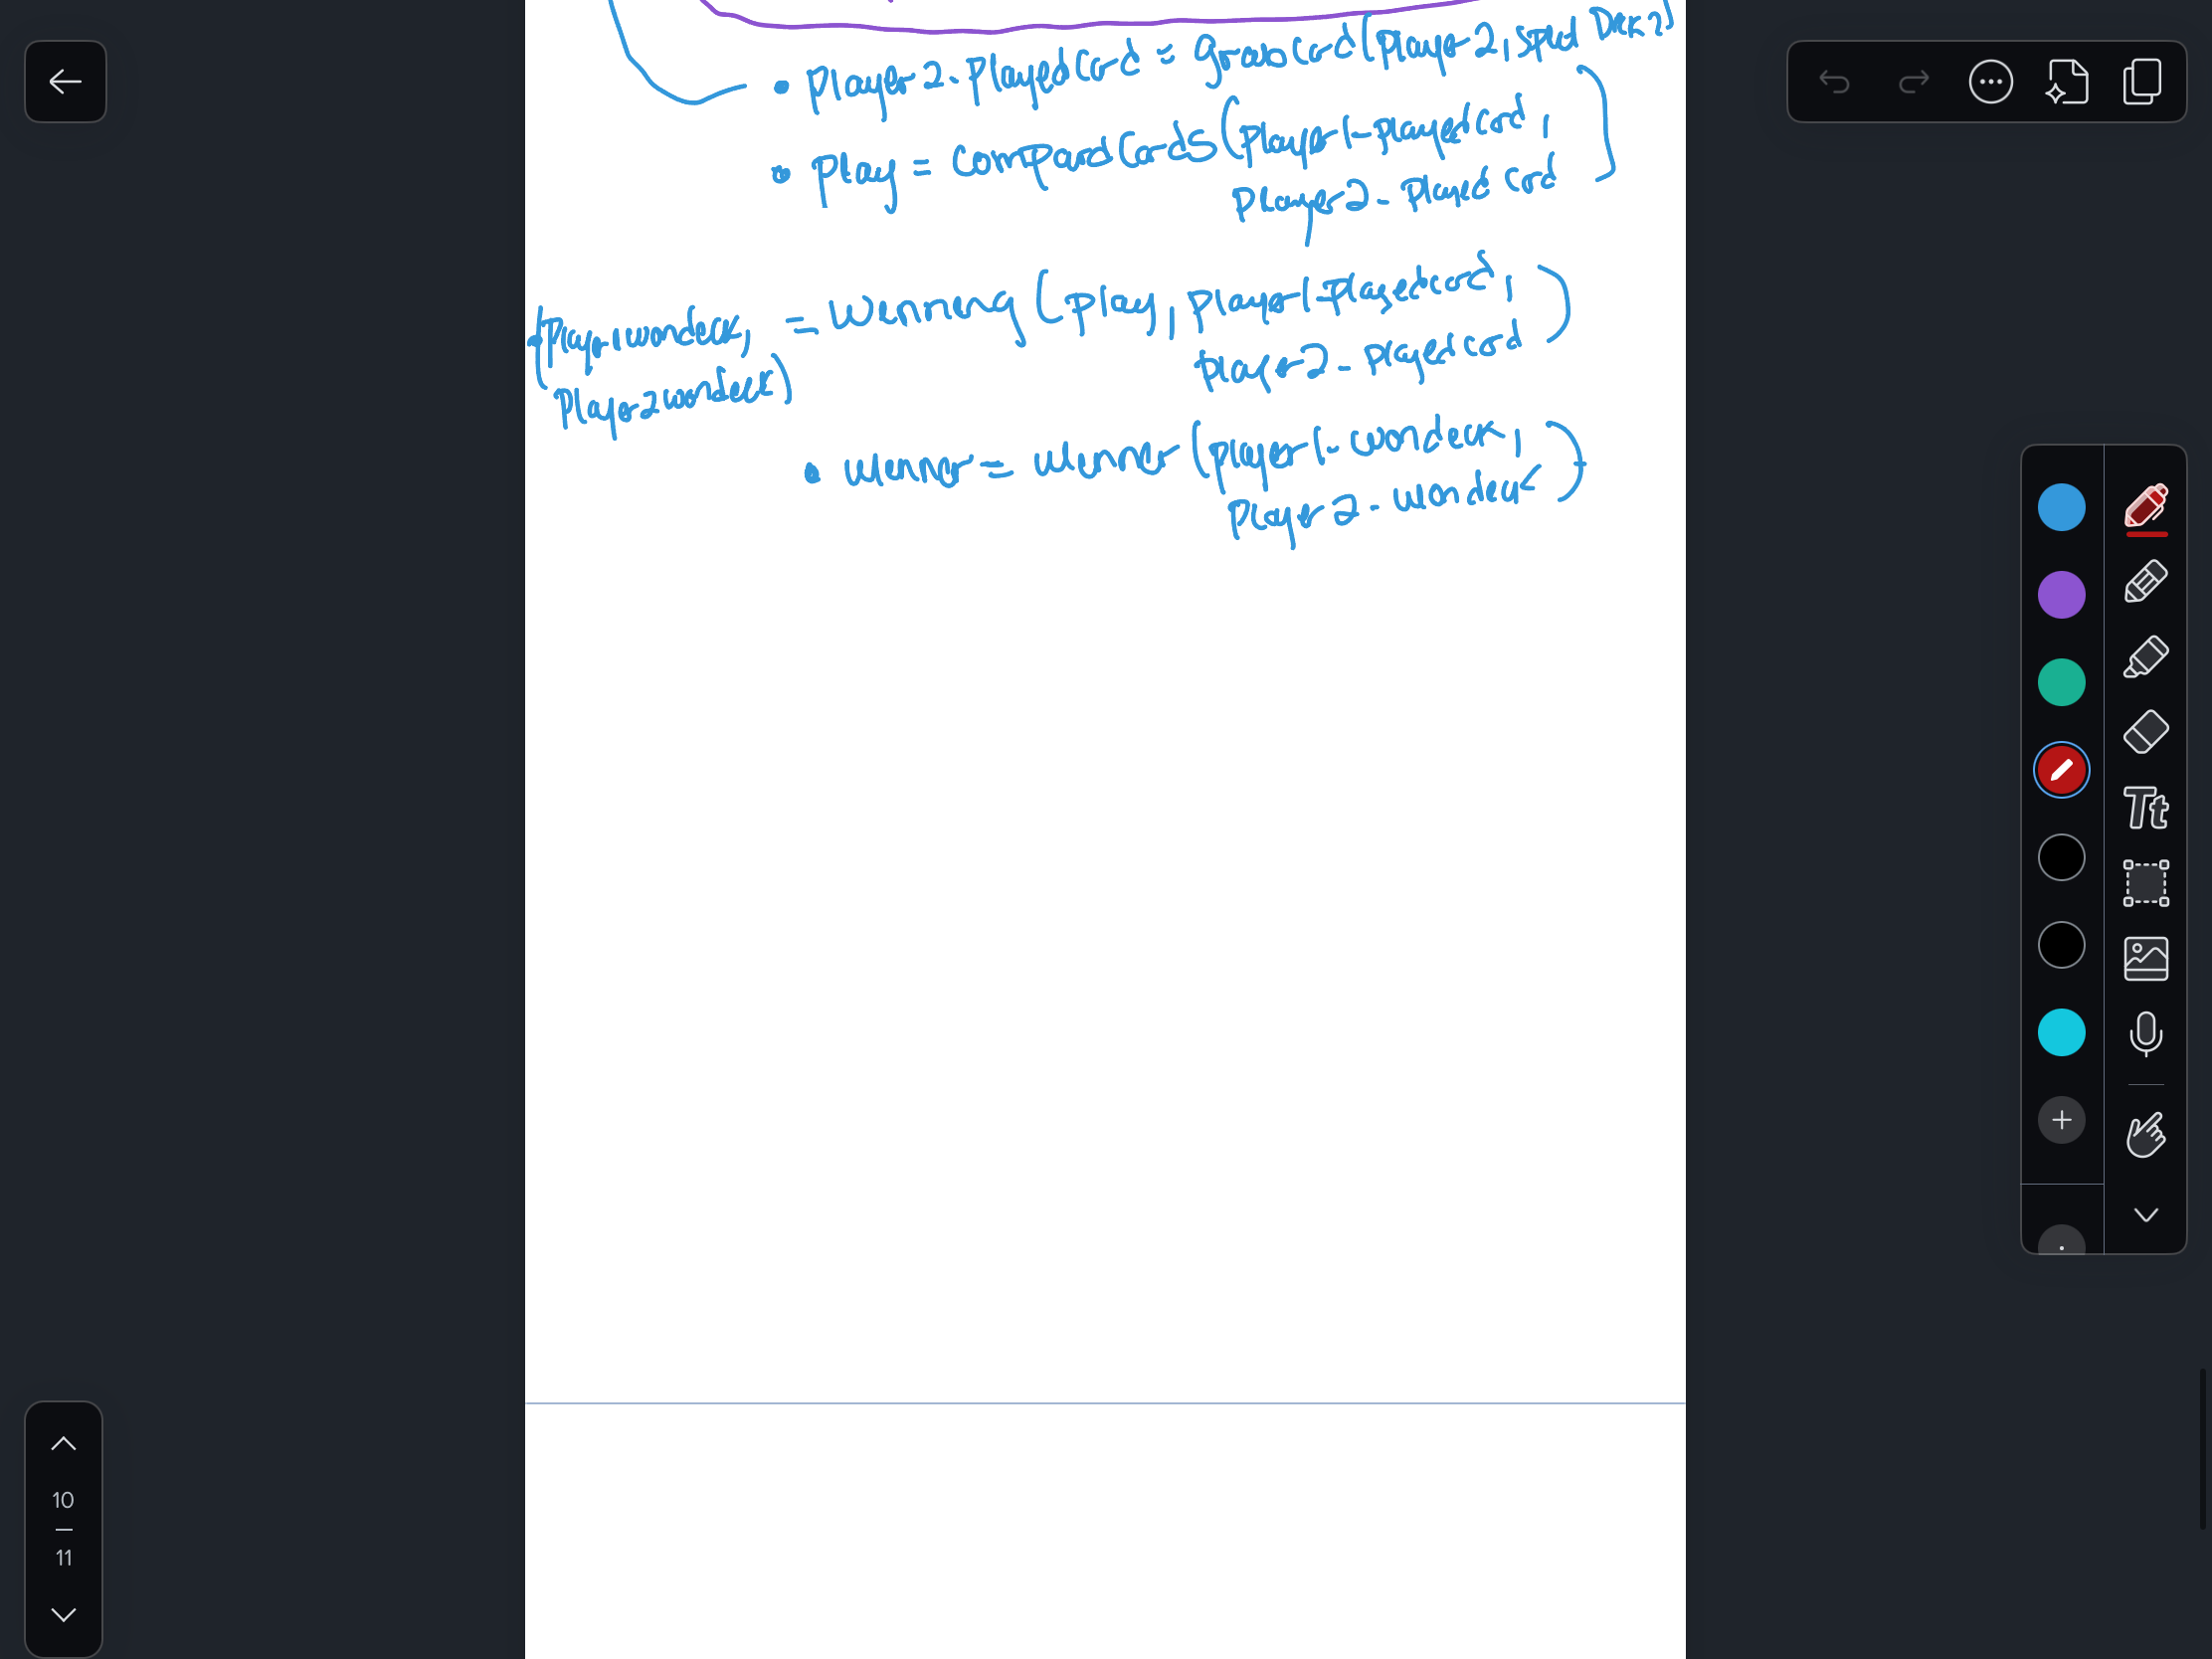 • Player2-PlayedCard = grabCard(Player2, Splid Deck2)
• Play = comparedCards(Player1-playedCard,
Player2-Played Card)
•(Player1wondeck, = Winning(Play, Player1-Playedcard,
Player2wondeck) Player2-Playedcard)
• Winner = Winner(Player1-wondeck,
Player2-wondeck)
Tt
10
11